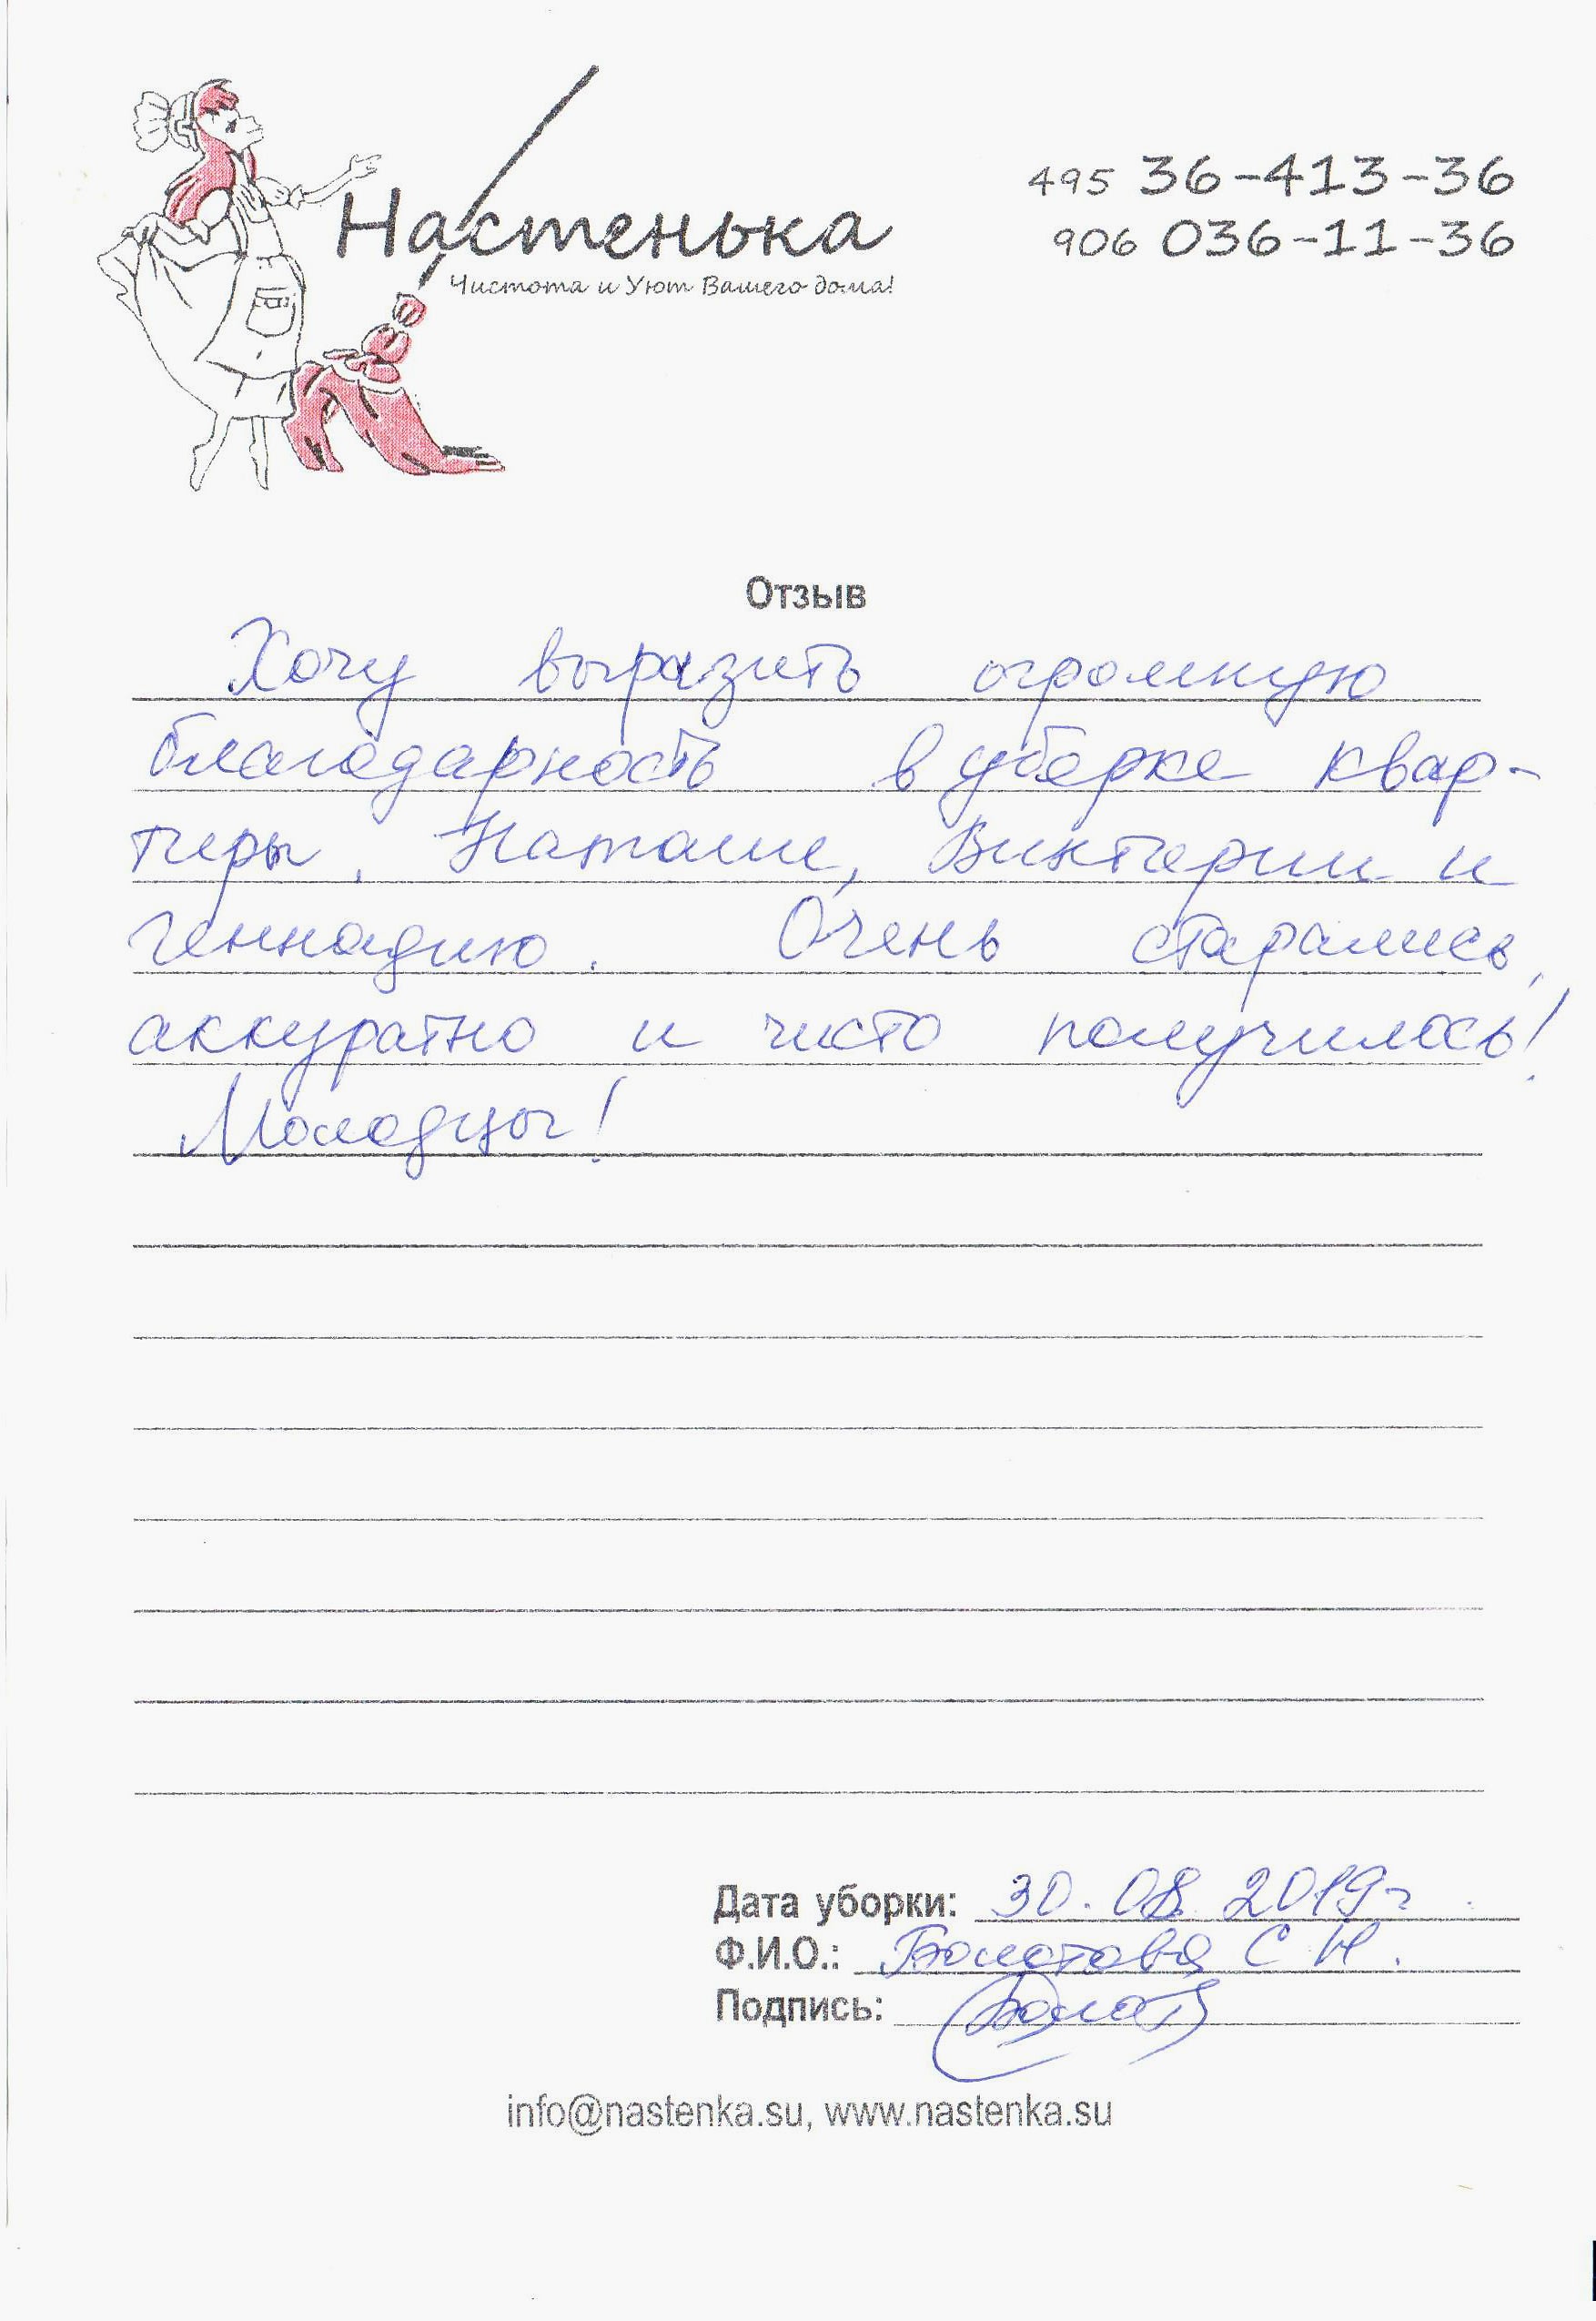 Настенька
Чистота и Уют Вашего дома!
495 36-413-36
906 036-11-36
Отзыв
Хочу выразить огромную
благодарность в уборке квар-
тиры. Наташе, Виктории и
Геннадию. Очень старались,
аккуратно и чисто получилось!
Молодцы!
Дата уборки: 30.08.2019г.
Ф.И.О.: Болотова С Н.
Подпись:
info@nastenka.su, www.nastenka.su